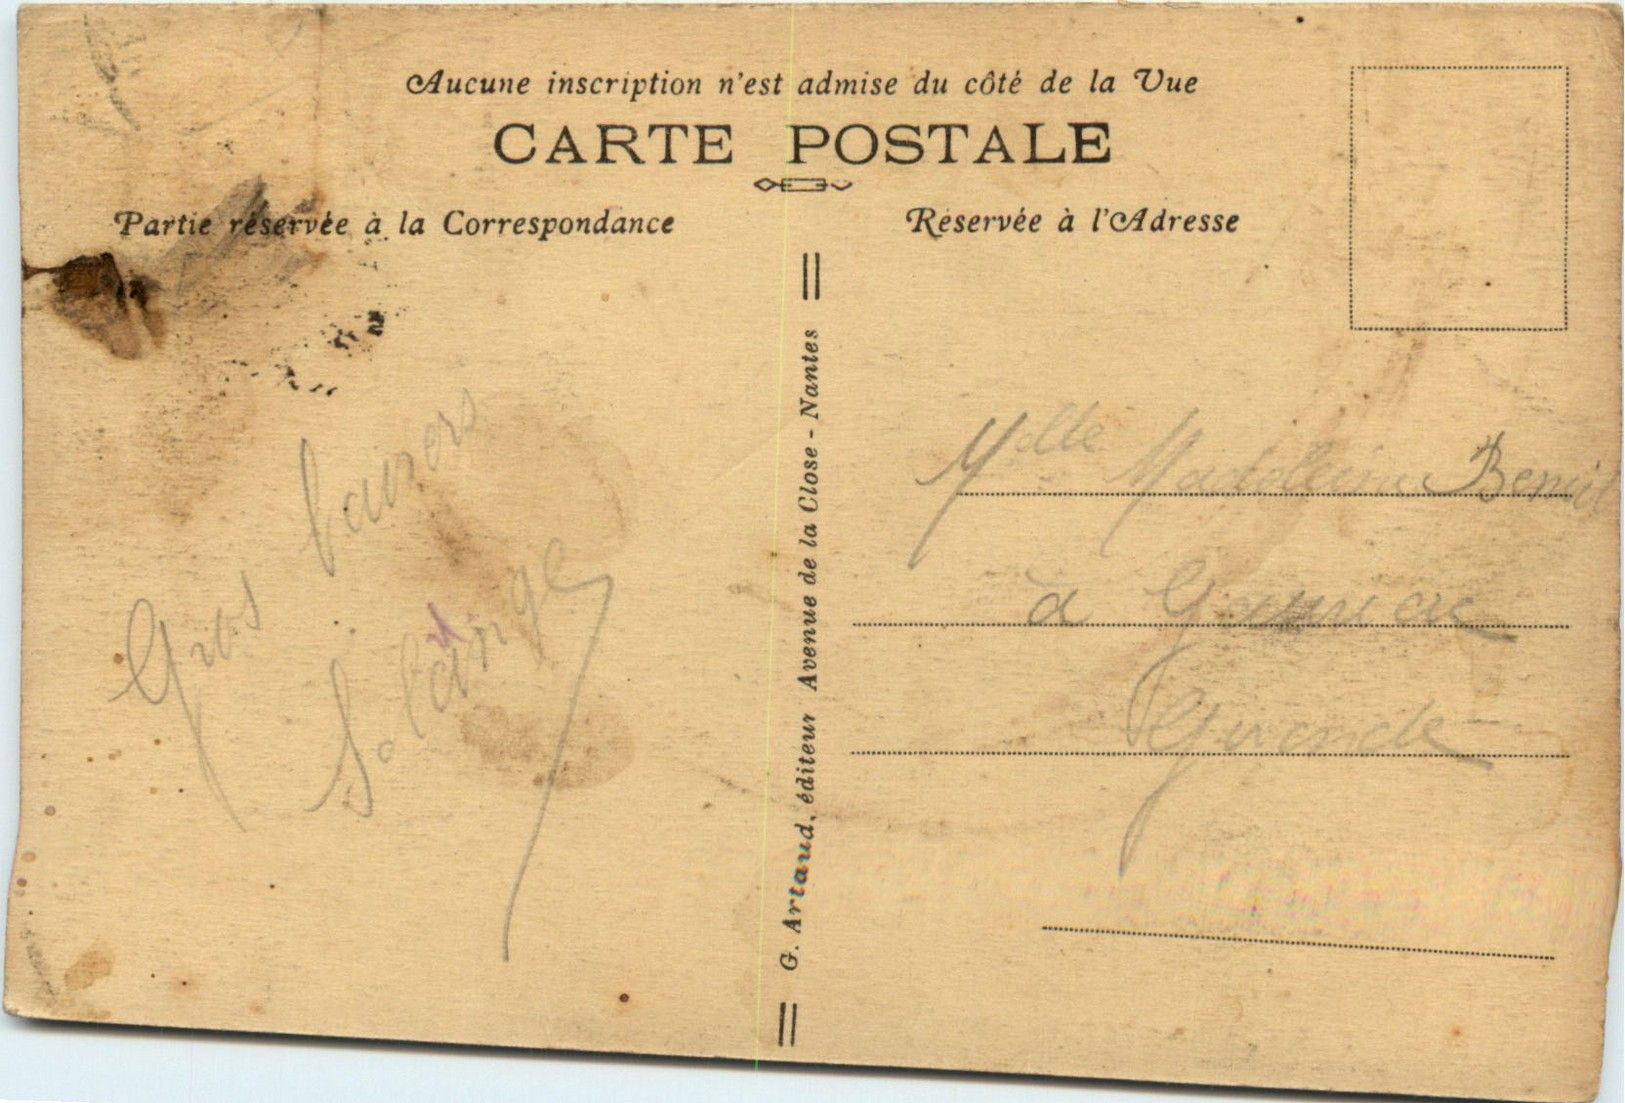 Aucune inscription n'est admise du côté de la Vue
CARTE POSTALE
Partie réservée à la Correspondance
Réservée à l'Adresse
Gros baisers
Solange
G. Artaud, éditeur Avenue de la Close - Nantes
Mlle Madeleine
à
Gironde